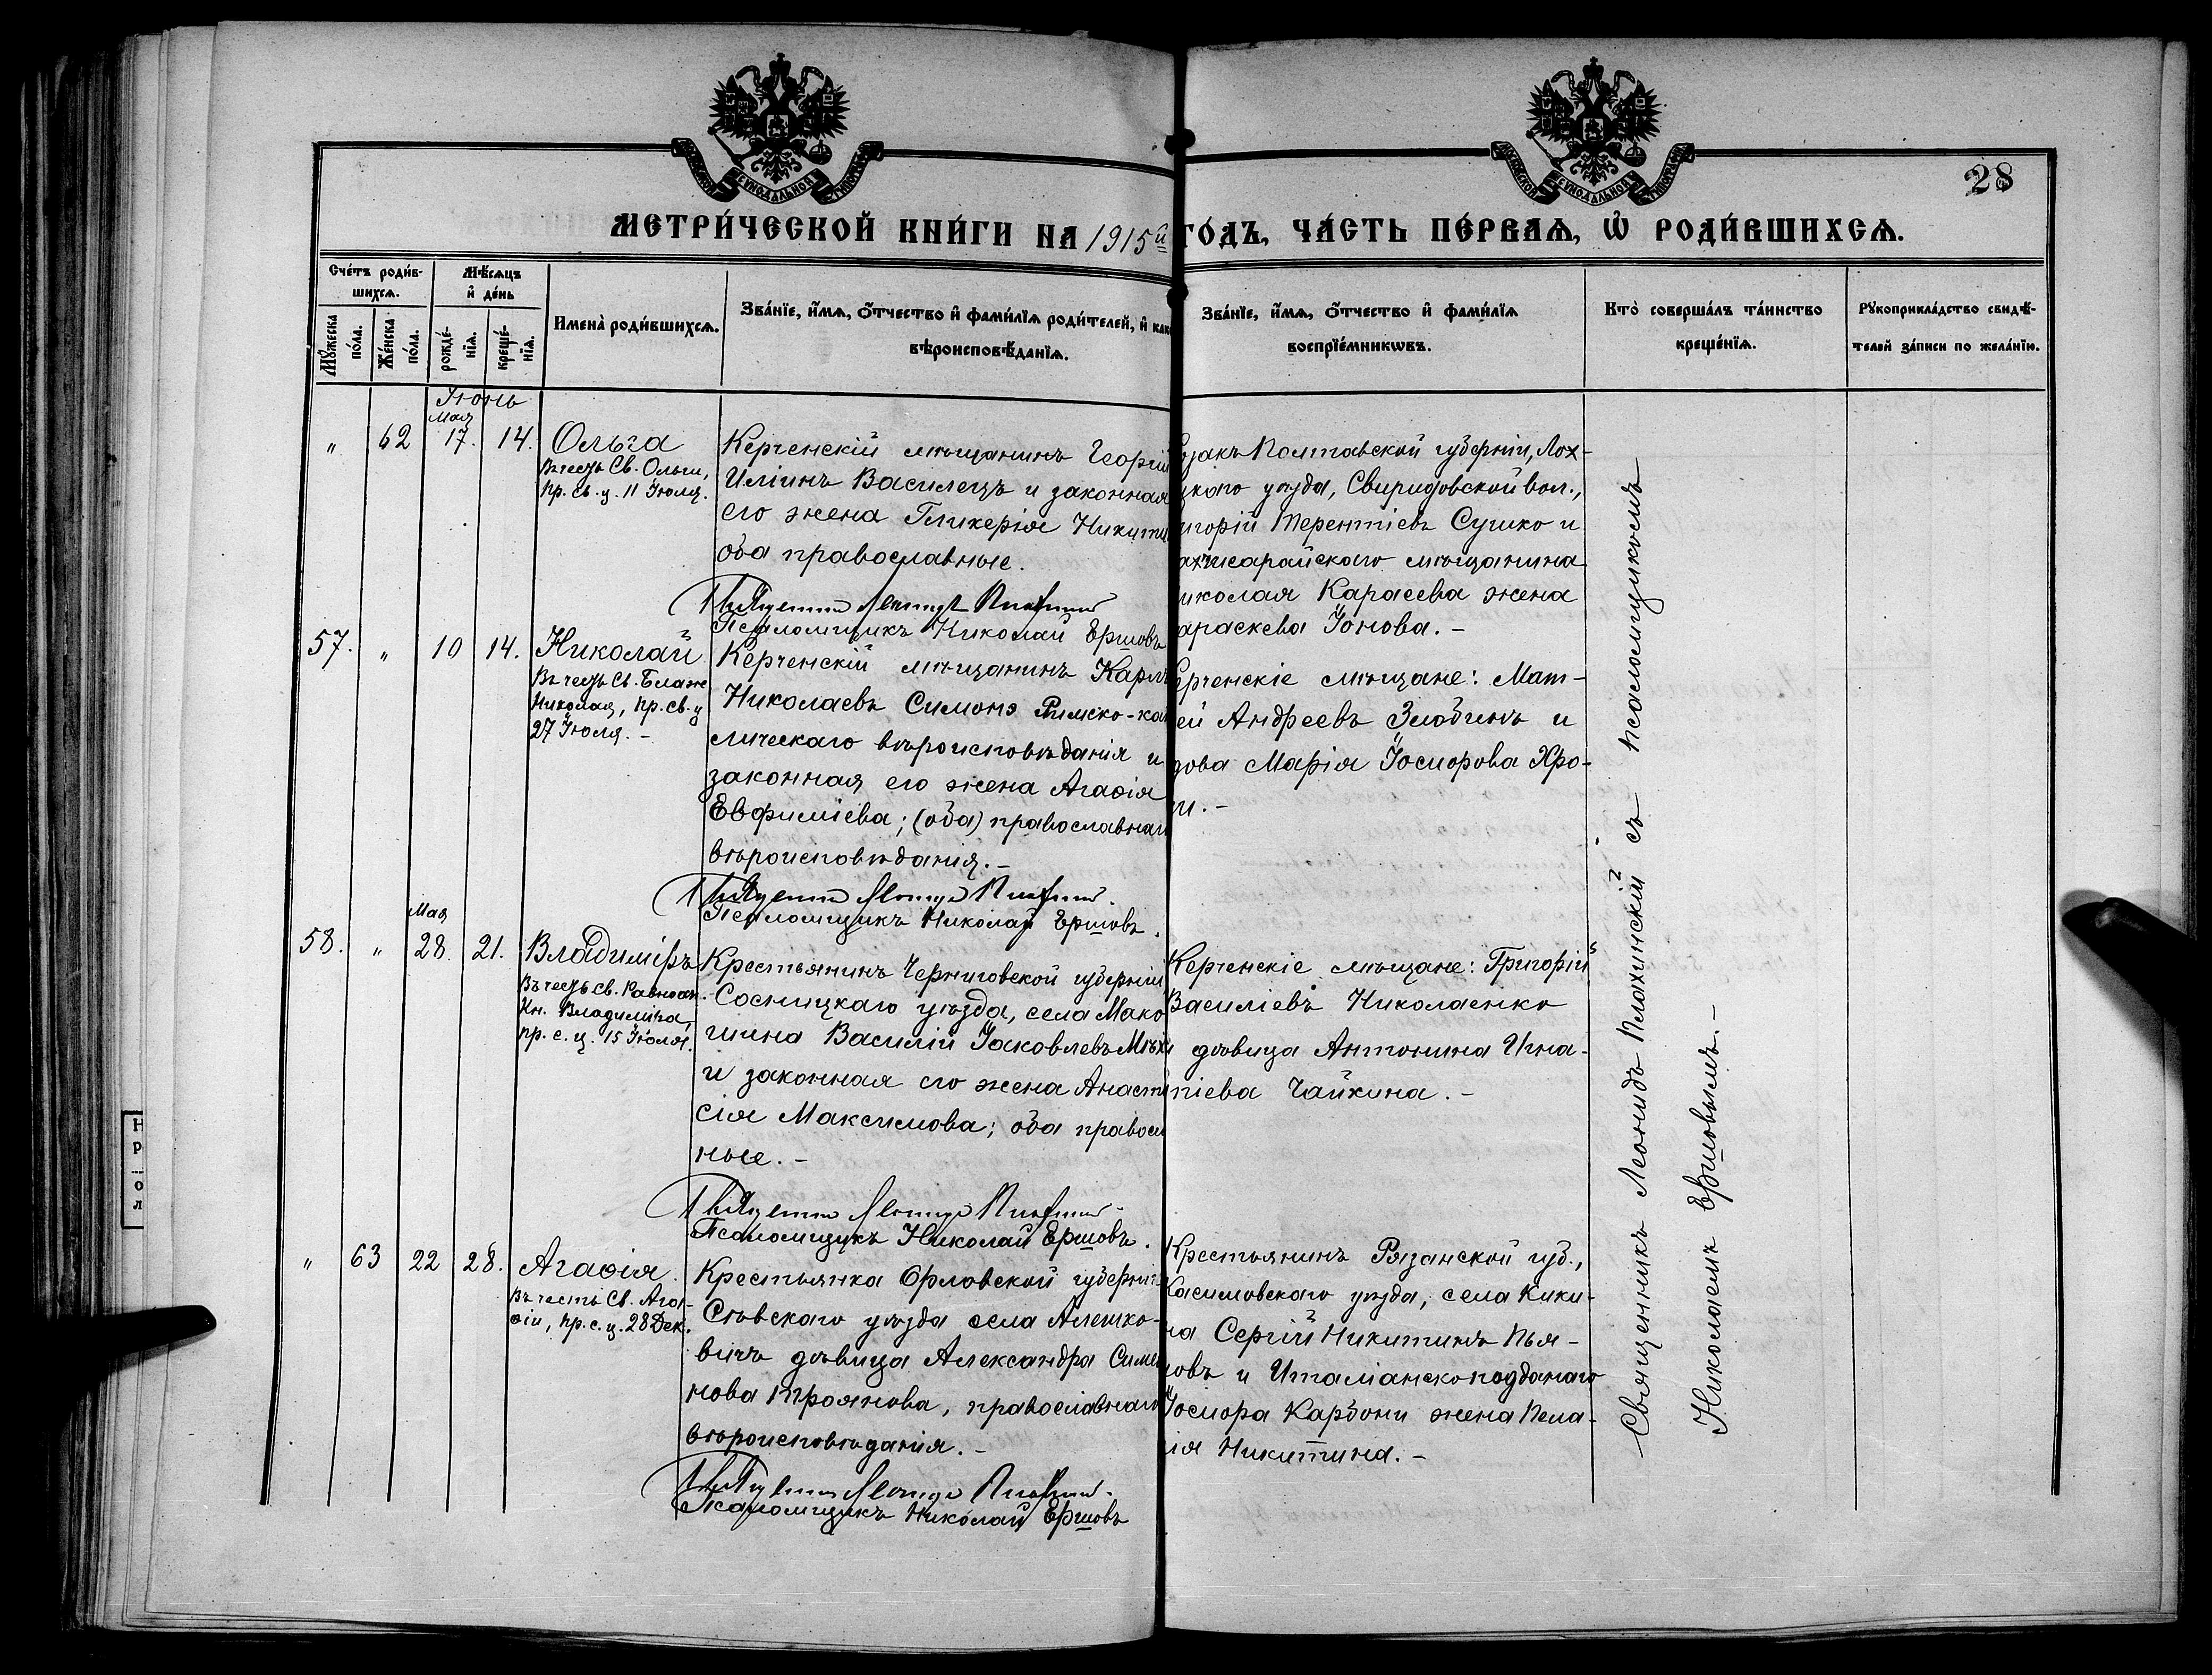 28
МЕТРИ́ЧЕСКОЙ КНИ́ГИ НА 1915й ГО́ДЪ, ЧА́СТЬ ПЕ́РВАЯ, Ѽ РОДИ́ВШИХСЯ.
Сче́тъ роди́в-
шихся.
Мѣ́сяцъ
и҆ де́нь
Му́жеска
по́ла.
Же́нска
по́ла.
рожде́-
нїя.
креще́-
нїя.
Имена̀ роди́вшихся.
Зва́нїе, и҆́мя, ѻ҆́тчество и҆ фами́лїя роди́телей, и҆ как
вѣроисповѣ́данїя.
Зва́нїе, и҆́мя, ѻ҆́тчество и҆ фами́лїя
воспрїе́мникѡвъ.
Кто̀ соверша́лъ та́инство
креще́нїя.
Рукоприкла́дство свидѣ́-
телей за́писи по жела́нїю.
Іюнь
Мая
" 62 17. 14. Ольга
Въ честь Св. Ольги,
пр. св. ц. 11 Іюля.
Керченскій мѣщанинъ Георгій
Иліинъ Василецъ и законная
его жена Гликерія Никити
оба православные.
Псаломщикъ Николай Ершовъ
озакъ Полтавской губерніи, Лох-
цкаго уѣзда, Свиридовской вол.,
игорій Терентіевъ Сушко и
ахчисарайскаго мѣщанина
иколая Карасева жена
араскева Іонова. -
57. " 10 14. Николай
Въ честь Св. Блаж.
Николая, пр. св. ц.
27 Іюля. -
Керченскій мѣщанинъ Карлъ
Николаевъ Симонэ Римско-ка
лическаго вѣроисповѣданія и
законная его жена Агаѳія
Евфиміева; (оба) православнаго
вѣроисповѣданія. -
Псаломщикъ Николай Ершовъ.
ерченскіе мѣщане: Мат-
ей Андреевъ Злобинъ и
дова Марія Іосифова Хро-
и. -
Мая
58. " 28. 21. Владиміръ
Въ честь Св. Равноап.
Кн. Владиміра,
пр. с. ц. 15 Іюля.
Крестьянинъ Черниговской губерніи
Сосницкаго уѣзда, села Мако
шина Василій Іаковлевъ Мѣхъ
и законная его жена Анаста
сія Максимова; оба правосл
ные. -
Псаломщикъ Николай Ершовъ.
Керченскіе мѣщане: Григорій
Василіевъ Николаенко
и дѣвица Антонина Игна-
тіева Чайкина. -
" 63 22 28. Агаѳія.
Въ честь Св. Ага-
ѳіи, пр. с. ц. 28 Дек.
Крестьянка Орловской губерніи
Сѣвскаго уѣзда села Алешко-
вичъ дѣвица Александра Симе
нова Троянова, православнаго
вѣроисповѣданія. -
Псаломщикъ Николай Ершовъ
Крестьянинъ Рязанской губ.,
Касимовскаго уѣзда, села Кики-
на Сергій Никитинъ Пья-
новъ и Италіанскоподданаго
Іосифа Карбони жена Пела-
ія Никитина. -
Священникъ Леонидъ Плахинскій съ псаломщикомъ
Николаемъ Ершовымъ. -